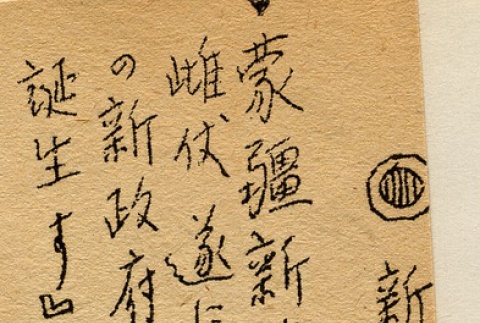 新
蒙疆新
雌伏遂に
の新政府
誕生す